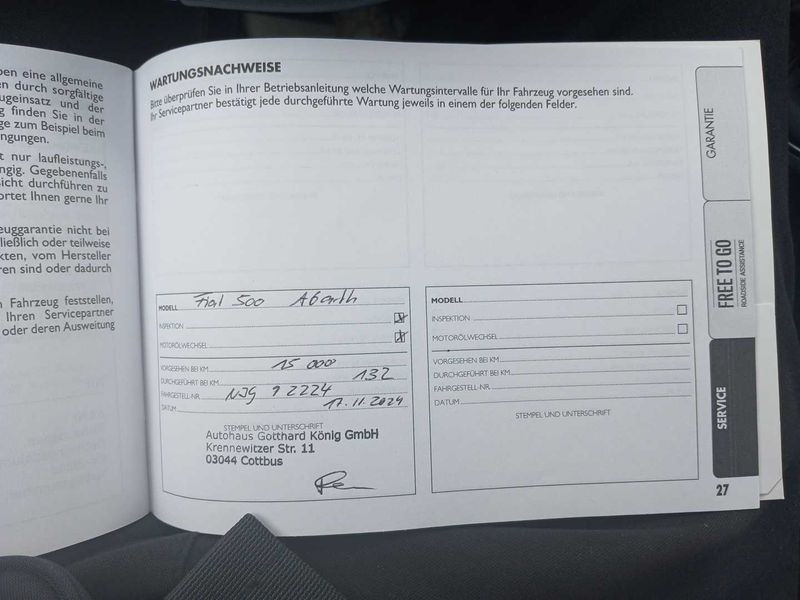 ben eine allgemeine
en durch sorgfältige
ugeinsatz und der
g finden Sie in der
ge zum Beispiel beim
ngungen.
t nur laufleistungs-,
ngig. Gegebenenfalls
sicht durchführen zu
ortet Ihnen gerne Ihr
euggarantie nicht bei
ließlich oder teilweise
kten, vom Hersteller
ren sind oder dadurch
Fahrzeug feststellen,
Ihren Servicepartner
oder deren Ausweitung
WARTUNGSNACHWEISE
Bitte überprüfen Sie in Ihrer Betriebsanleitung welche Wartungsintervalle für Ihr Fahrzeug vorgesehen sind.
Ihr Servicepartner bestätigt jede durchgeführte Wartung jeweils in einem der folgenden Felder.
MODELL Fiat 500 Abarth
INSPEKTION
MOTORÖLWECHSEL
VORGESEHEN BEI KM 15 000
DURCHGEFÜHRT BEI KM 132
FAHRGESTELL-NR. NJ9 92224
DATUM 17.11.2024
STEMPEL UND UNTERSCHRIFT
Autohaus Gotthard König GmbH
Krennewitzer Str. 11
03044 Cottbus
MODELL
INSPEKTION
MOTORÖLWECHSEL
VORGESEHEN BEI KM
DURCHGEFÜHRT BEI KM
FAHRGESTELL-NR.
DATUM
STEMPEL UND UNTERSCHRIFT
GARANTIE
FREE TO GO
ROADSIDE ASSISTANCE
SERVICE
27